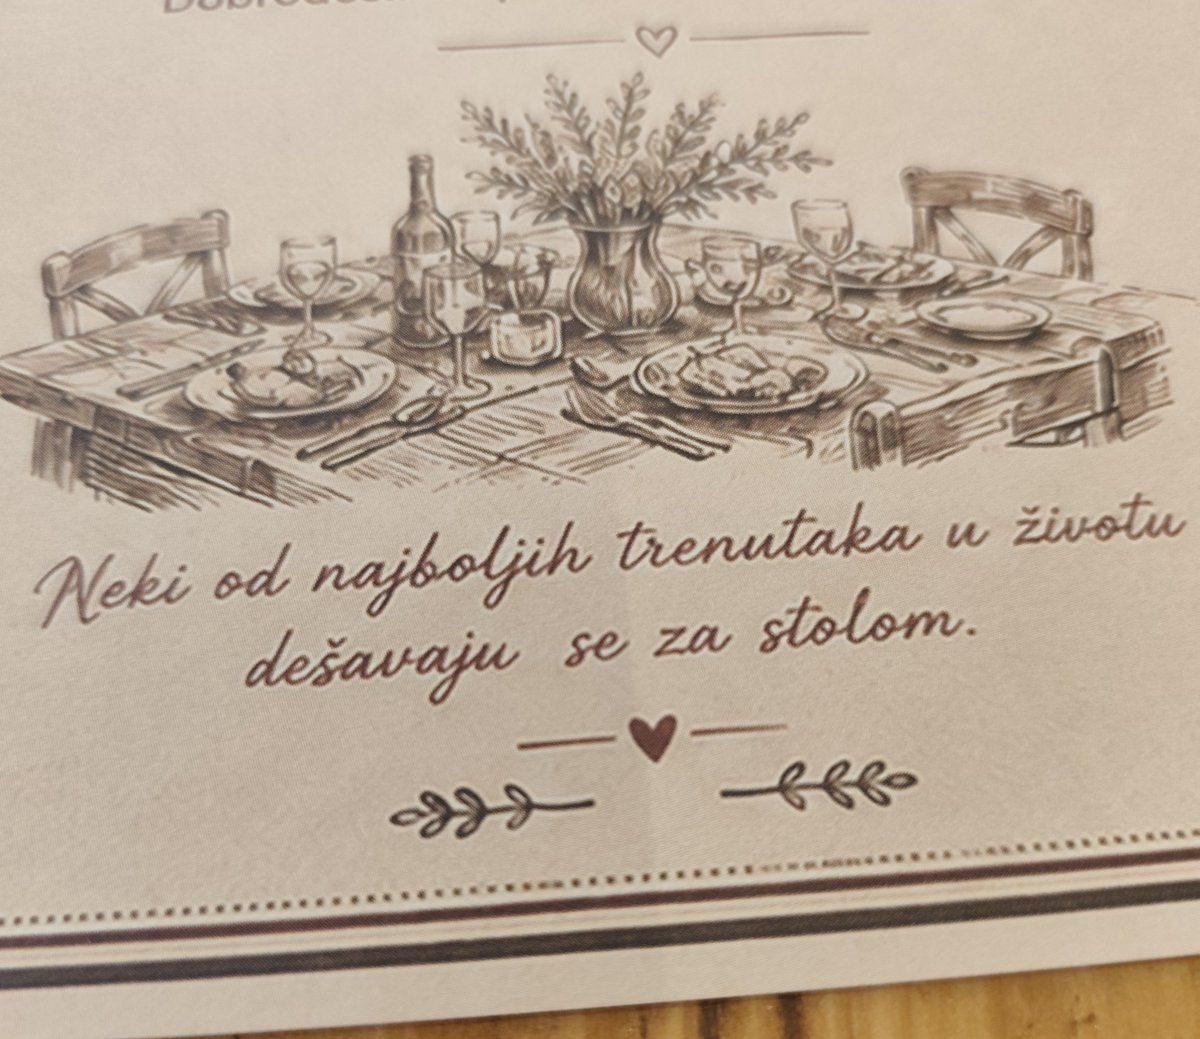 Neki od najboljih trenutaka u životu
dešavaju se za stolom.